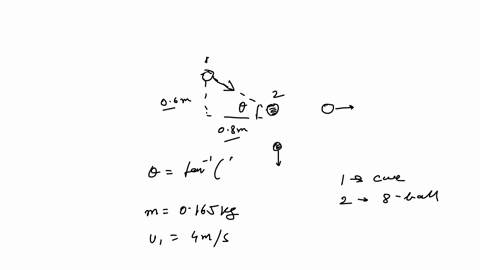 1
2
0.6m
θ
0.8m
θ = tan⁻¹ (
m = 0.165kg
u₁ = 4m/s
1 → cue
2 → 8-ball